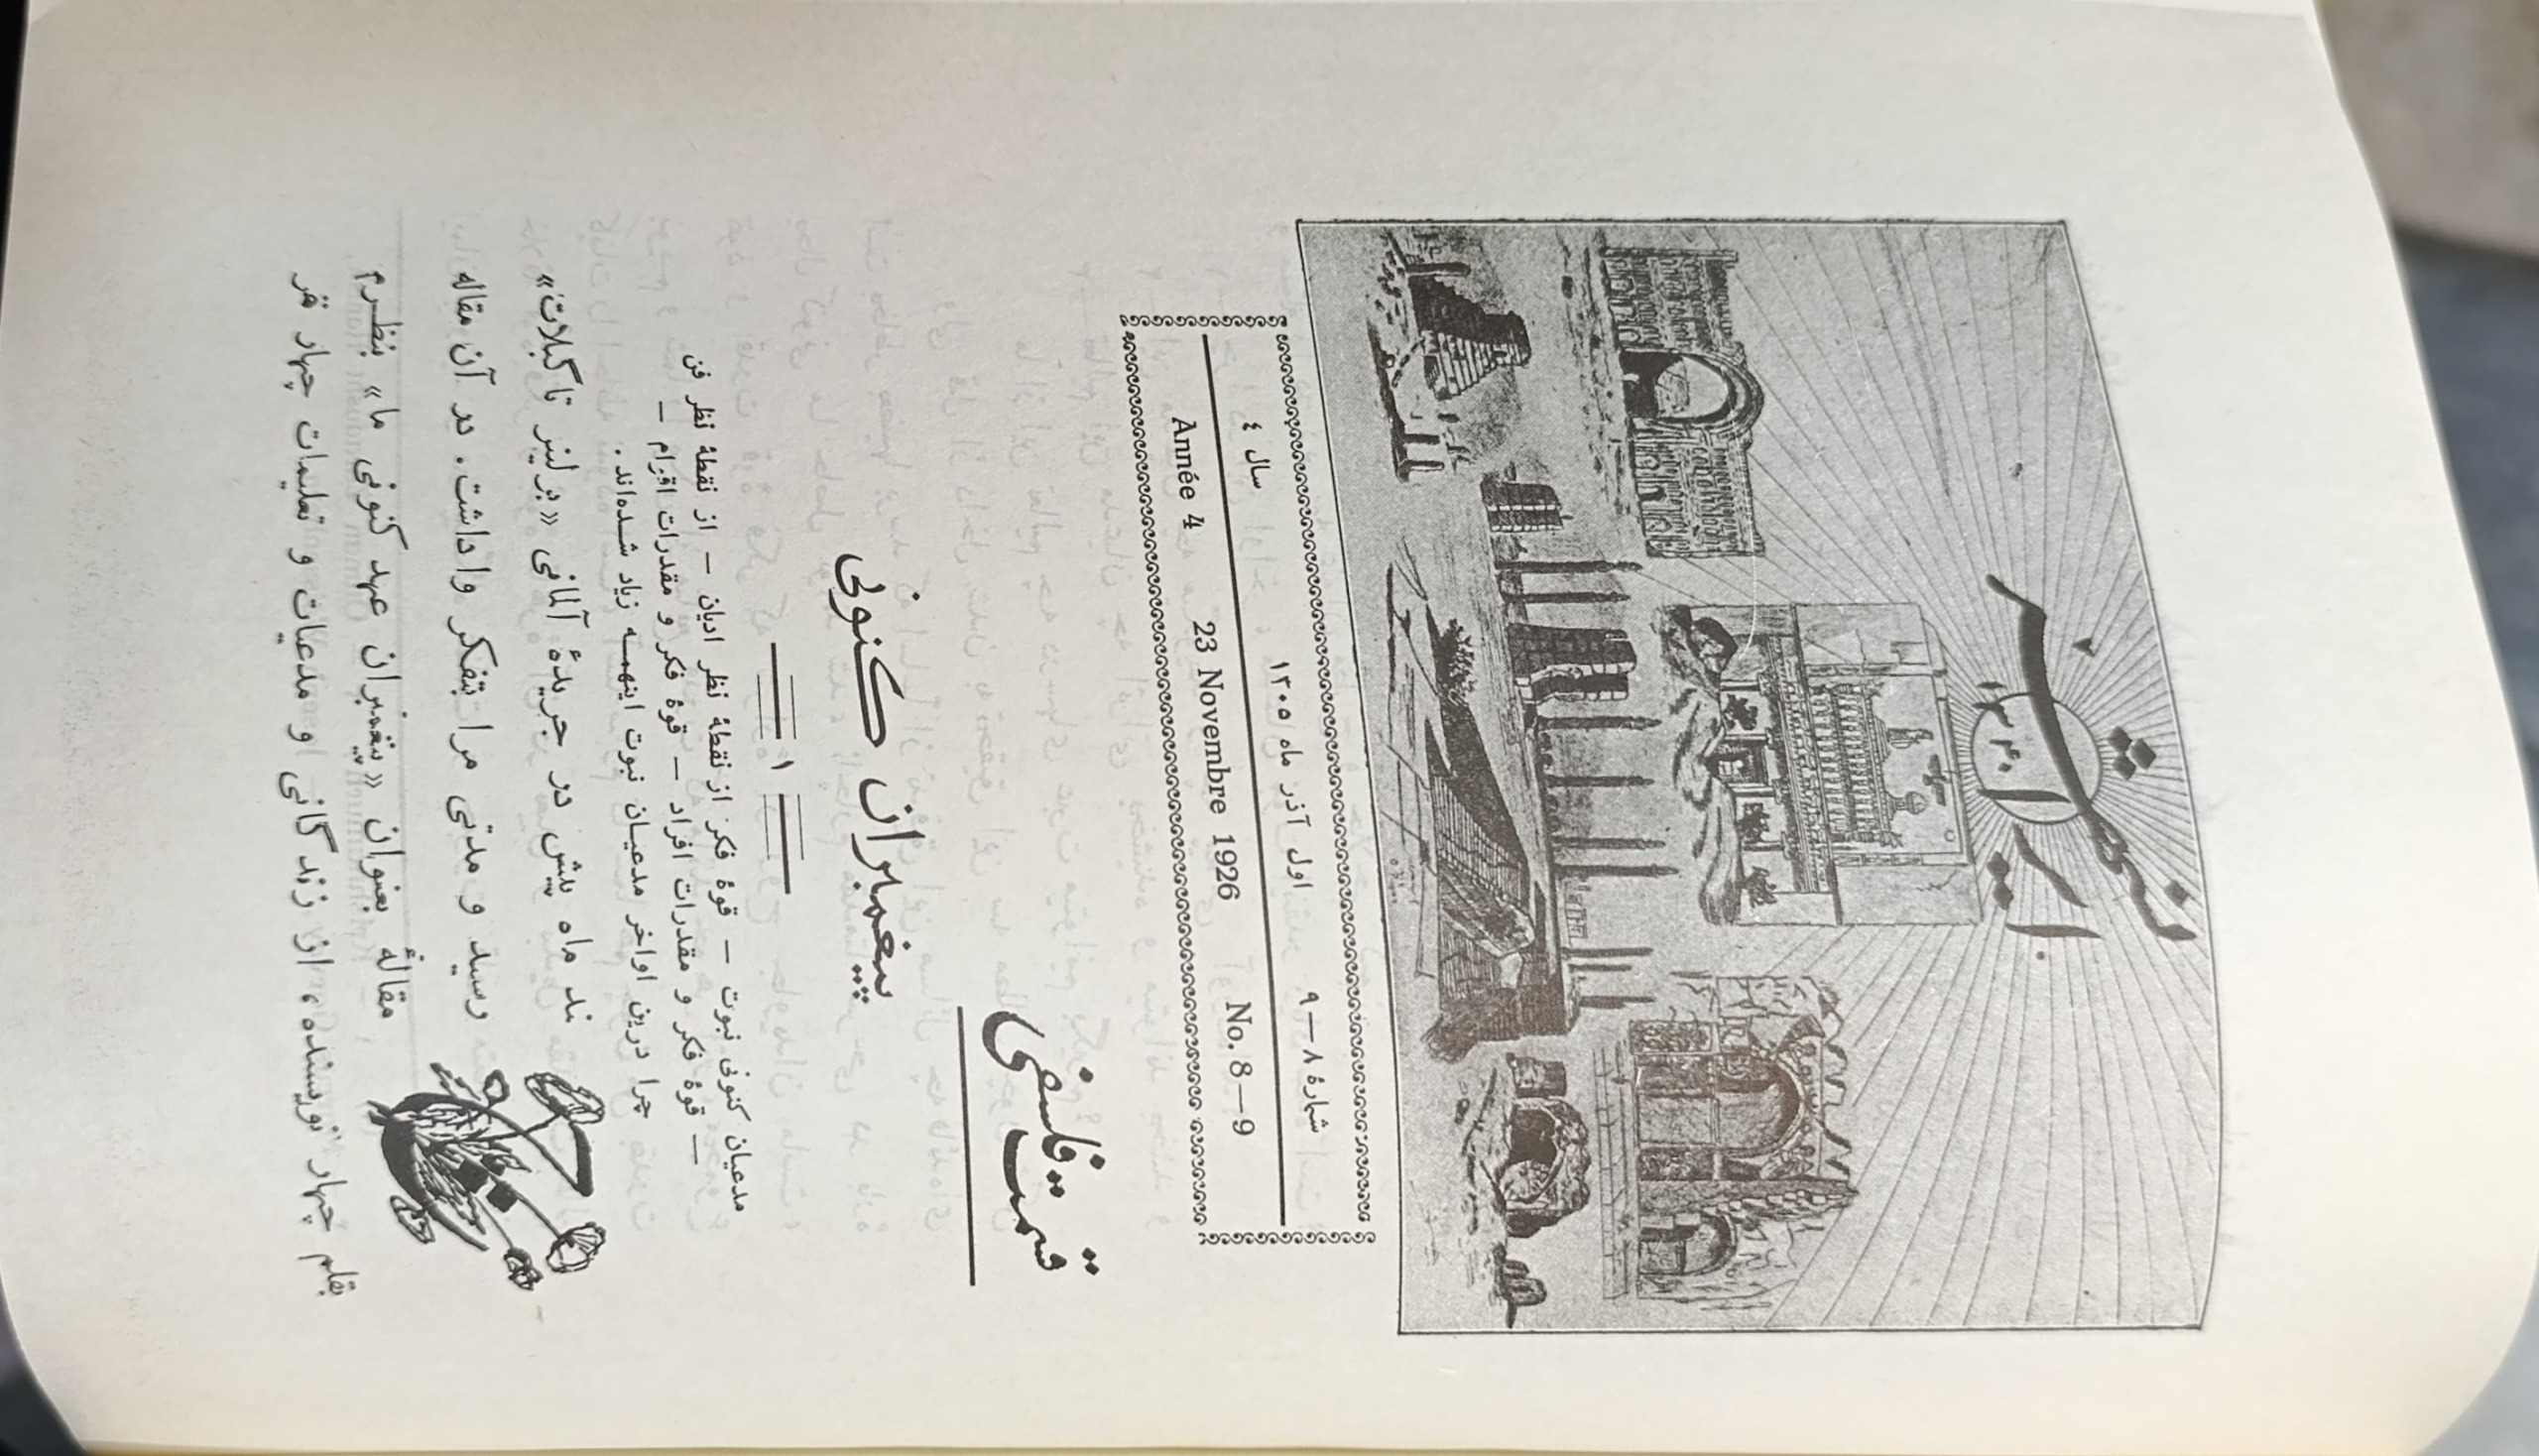 ایرانشهر
۱۳۴۰
شمارهٔ ۸—۹ اول آذر ماه ۱۳۰۵ سال ٤
No. 8—9 23 Novembre 1926 Année 4
قسمت فلسفی
پیغمبران کنونی
۱
مدعیان کنونی نبوت — قوهٔ فکر از نقطهٔ نظر ادیان — از نقطهٔ نظر فن
— قوهٔ فکر و مقدرات افراد — قوهٔ فکر و مقدرات اقوام —
چرا درین اواخر مدعیان نبوت اینهمه زیاد شده‌اند.
چند ماه پیش در جریدهٔ آلمانی «برلینر تاگبلات»
مقالهٔ بعنوان «پیغمبران عهد کنونی ما» بنظرم
رسید و مدتی مرا بتفکر واداشت. در آن مقاله
بقلم چهار نویسنده، از زندگانی و مدعیات و تعلیمات چهار نفر